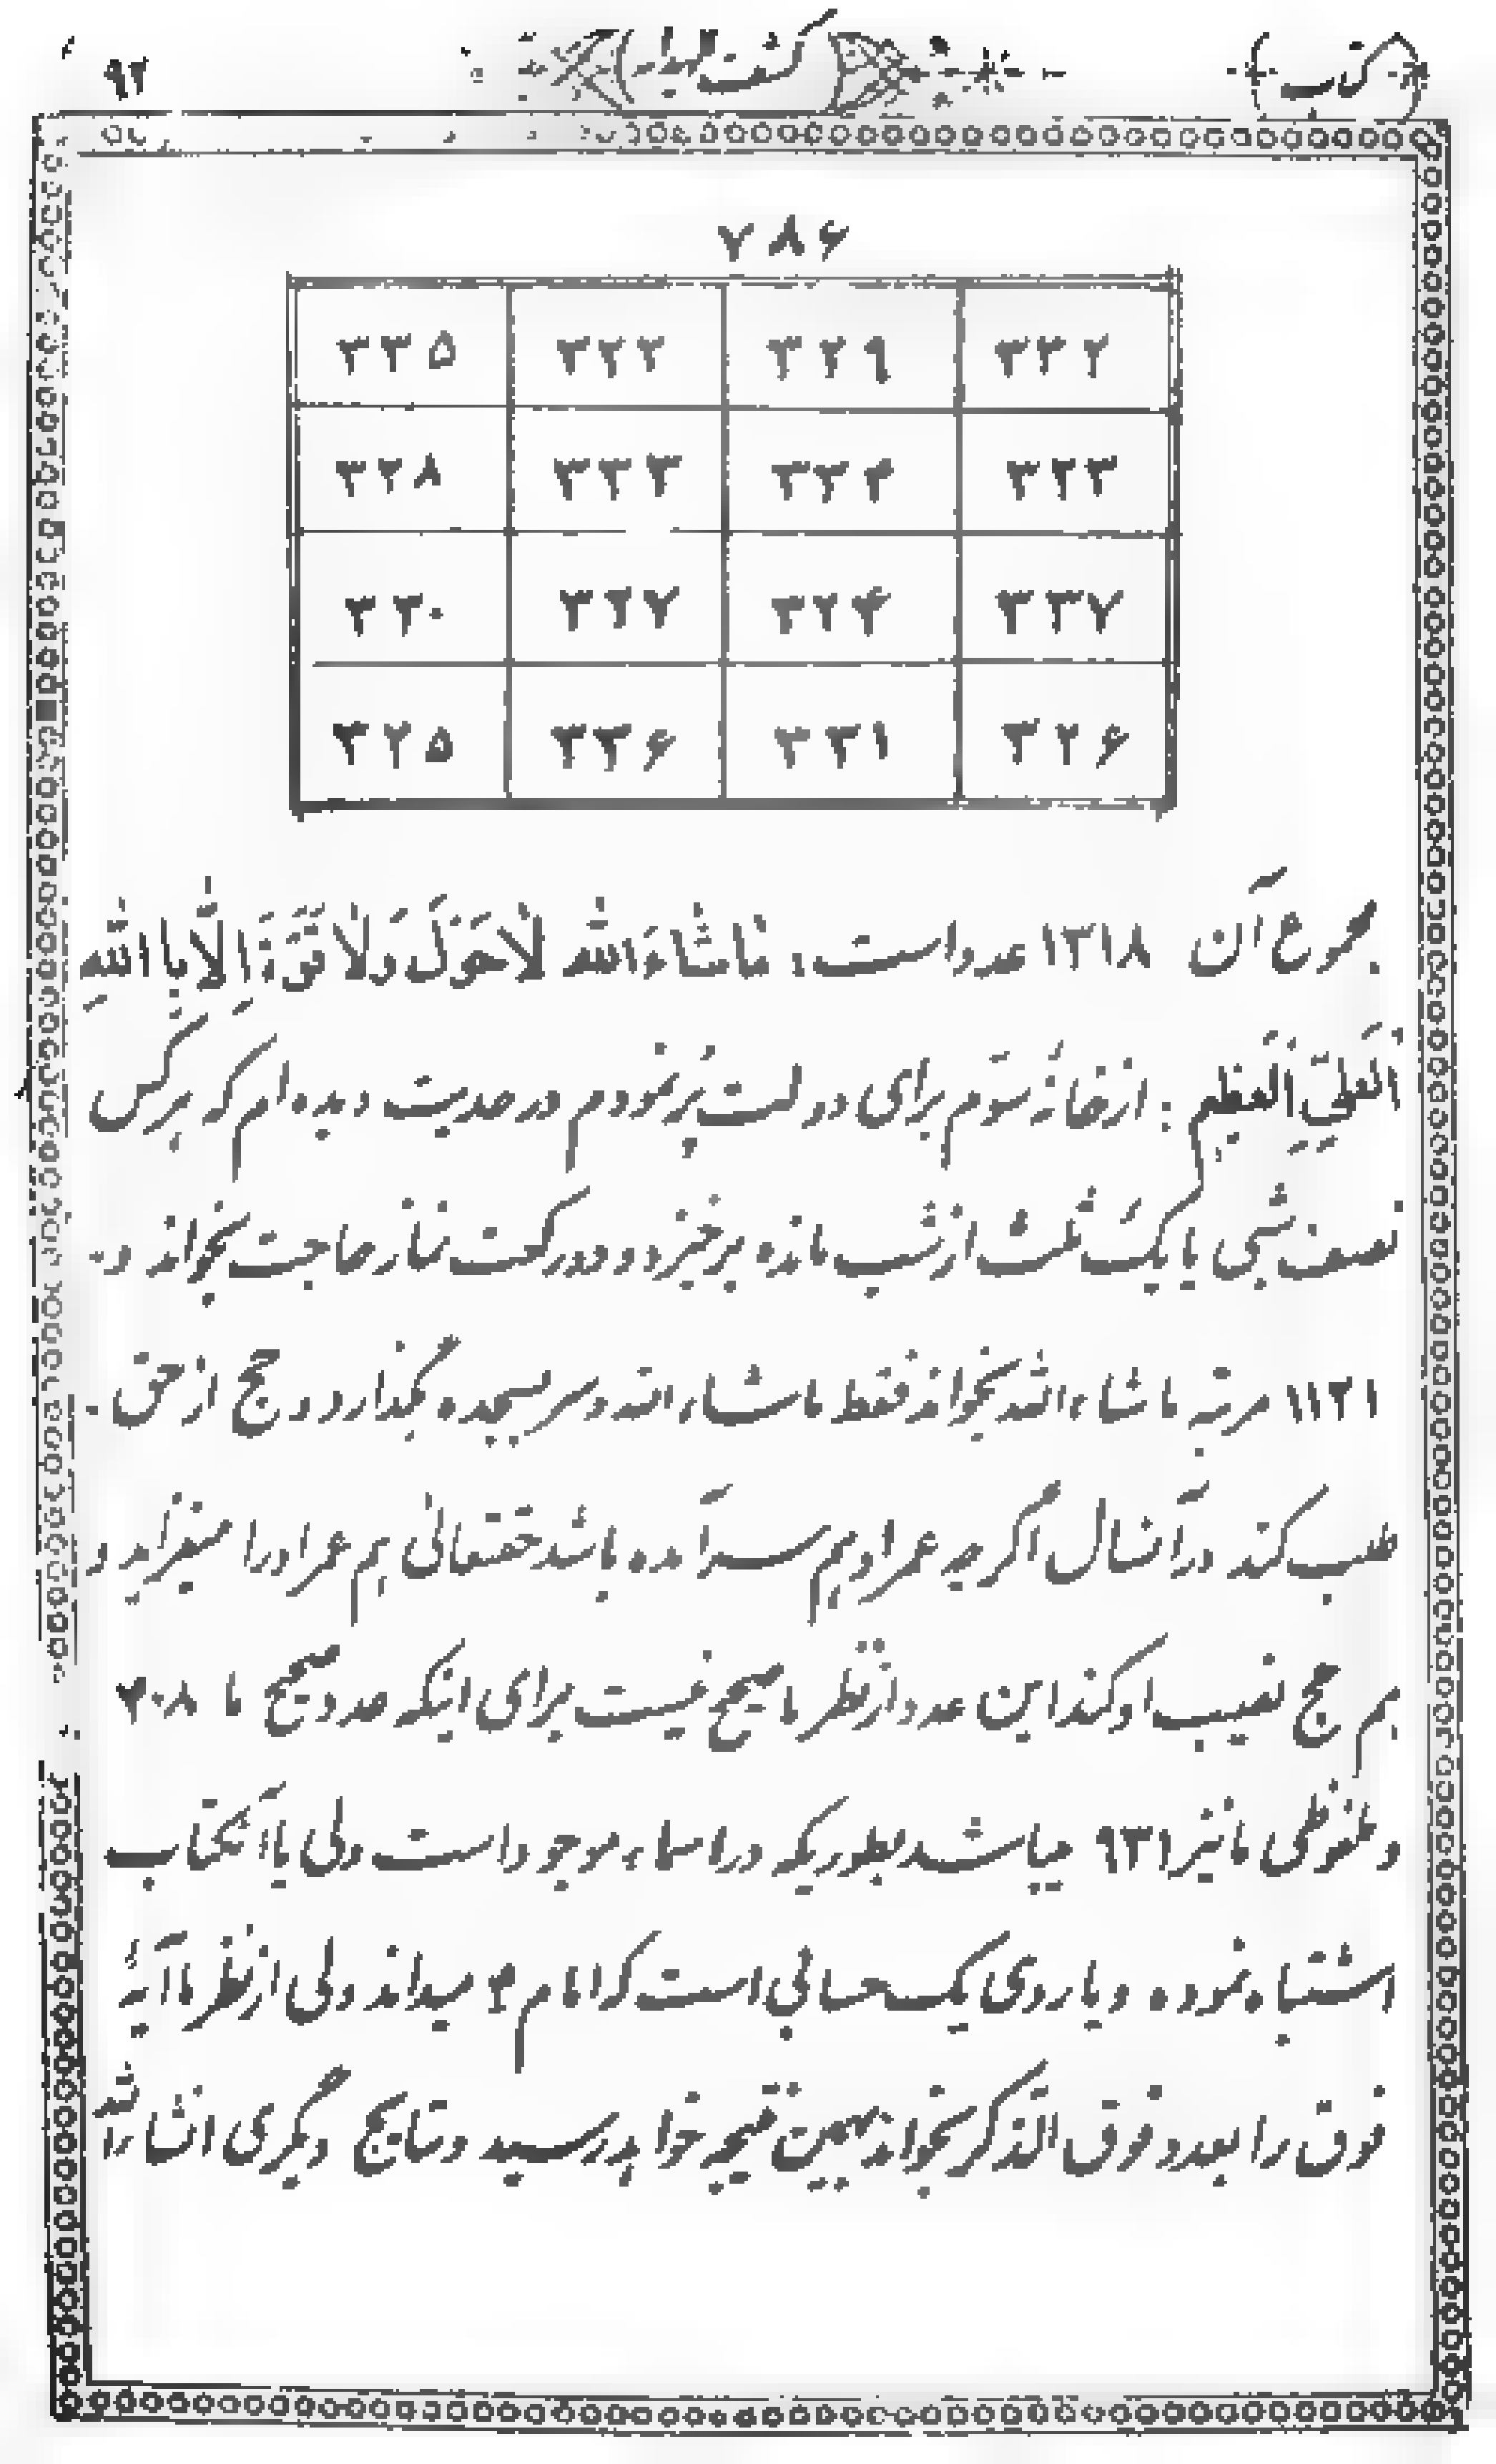 کتاب کشف الهدایه ۹۲
۷۸۶
۳۳۵ ۳۲۲ ۳۲۹ ۳۳۲
۳۲۸ ۳۳۳ ۳۳۴ ۳۲۳
۳۳۰ ۳۲۷ ۳۲۴ ۳۳۷
۳۲۵ ۳۳۶ ۳۳۱ ۳۲۶
مجموع آن ۱۳۱۸ عدد است : مٰاشٰاءَ الله لٰاحَوْلَ وَلٰا قُوَّةَ اِلّٰا بِا اللهِ
اَلْعَلِیِّ الْعَظِیمِ : از خانهٔ سوّم برای دولت پُر نمودم در حدیث دیده‌ام که هرکس
نصف شبی یا یک ثلث از شب مانده برخیزد و دو رکعت نماز حاجت بخواند و
۱۱۲۱ مرتبه ماشاءالله بخواند فقط ماشاءالله و سر بسجده بگذارد و حج از حق
طلب کند در آنسال اگرچه عمر او بهم سر آمده باشد حقتعالی هم عمر او را میفزاید و
هم حج نصیب او کند این عدد از نظر ما صحیح نیست برای اینکه عدد صحیح ما ۷۰۸
و ملفوظی ما نیز ۹۳۱ میباشد بطوریکه در اسماء موجود است ولی یا آنکتاب
اشتباه نموده و یا روی یک حسابی است که امام ۴ میداند ولی از نظر ما آیهٔ
فوق را بعدد فوق الذکر بخواند بهمین نتیجه خواهد رسید و نتایج دیگری انشاءالله